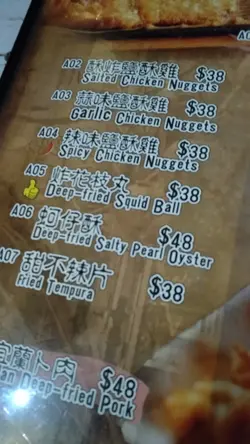 A02 酥炸鹽酥雞 $38
Salted Chicken Nuggets
A03 蒜味鹽酥雞 $38
Garlic Chicken Nuggets
A04 辣味鹽酥雞 $38
Spicy Chicken Nuggets
A05 炸花枝丸 $38
Deep-fried Squid Ball
A06 蚵仔酥 $48
Deep-fried Salty Pearl Oyster
A07 甜不辣片 $38
Fried Tempura
宜蘭卜肉 $48
lan Deep-fried Pork